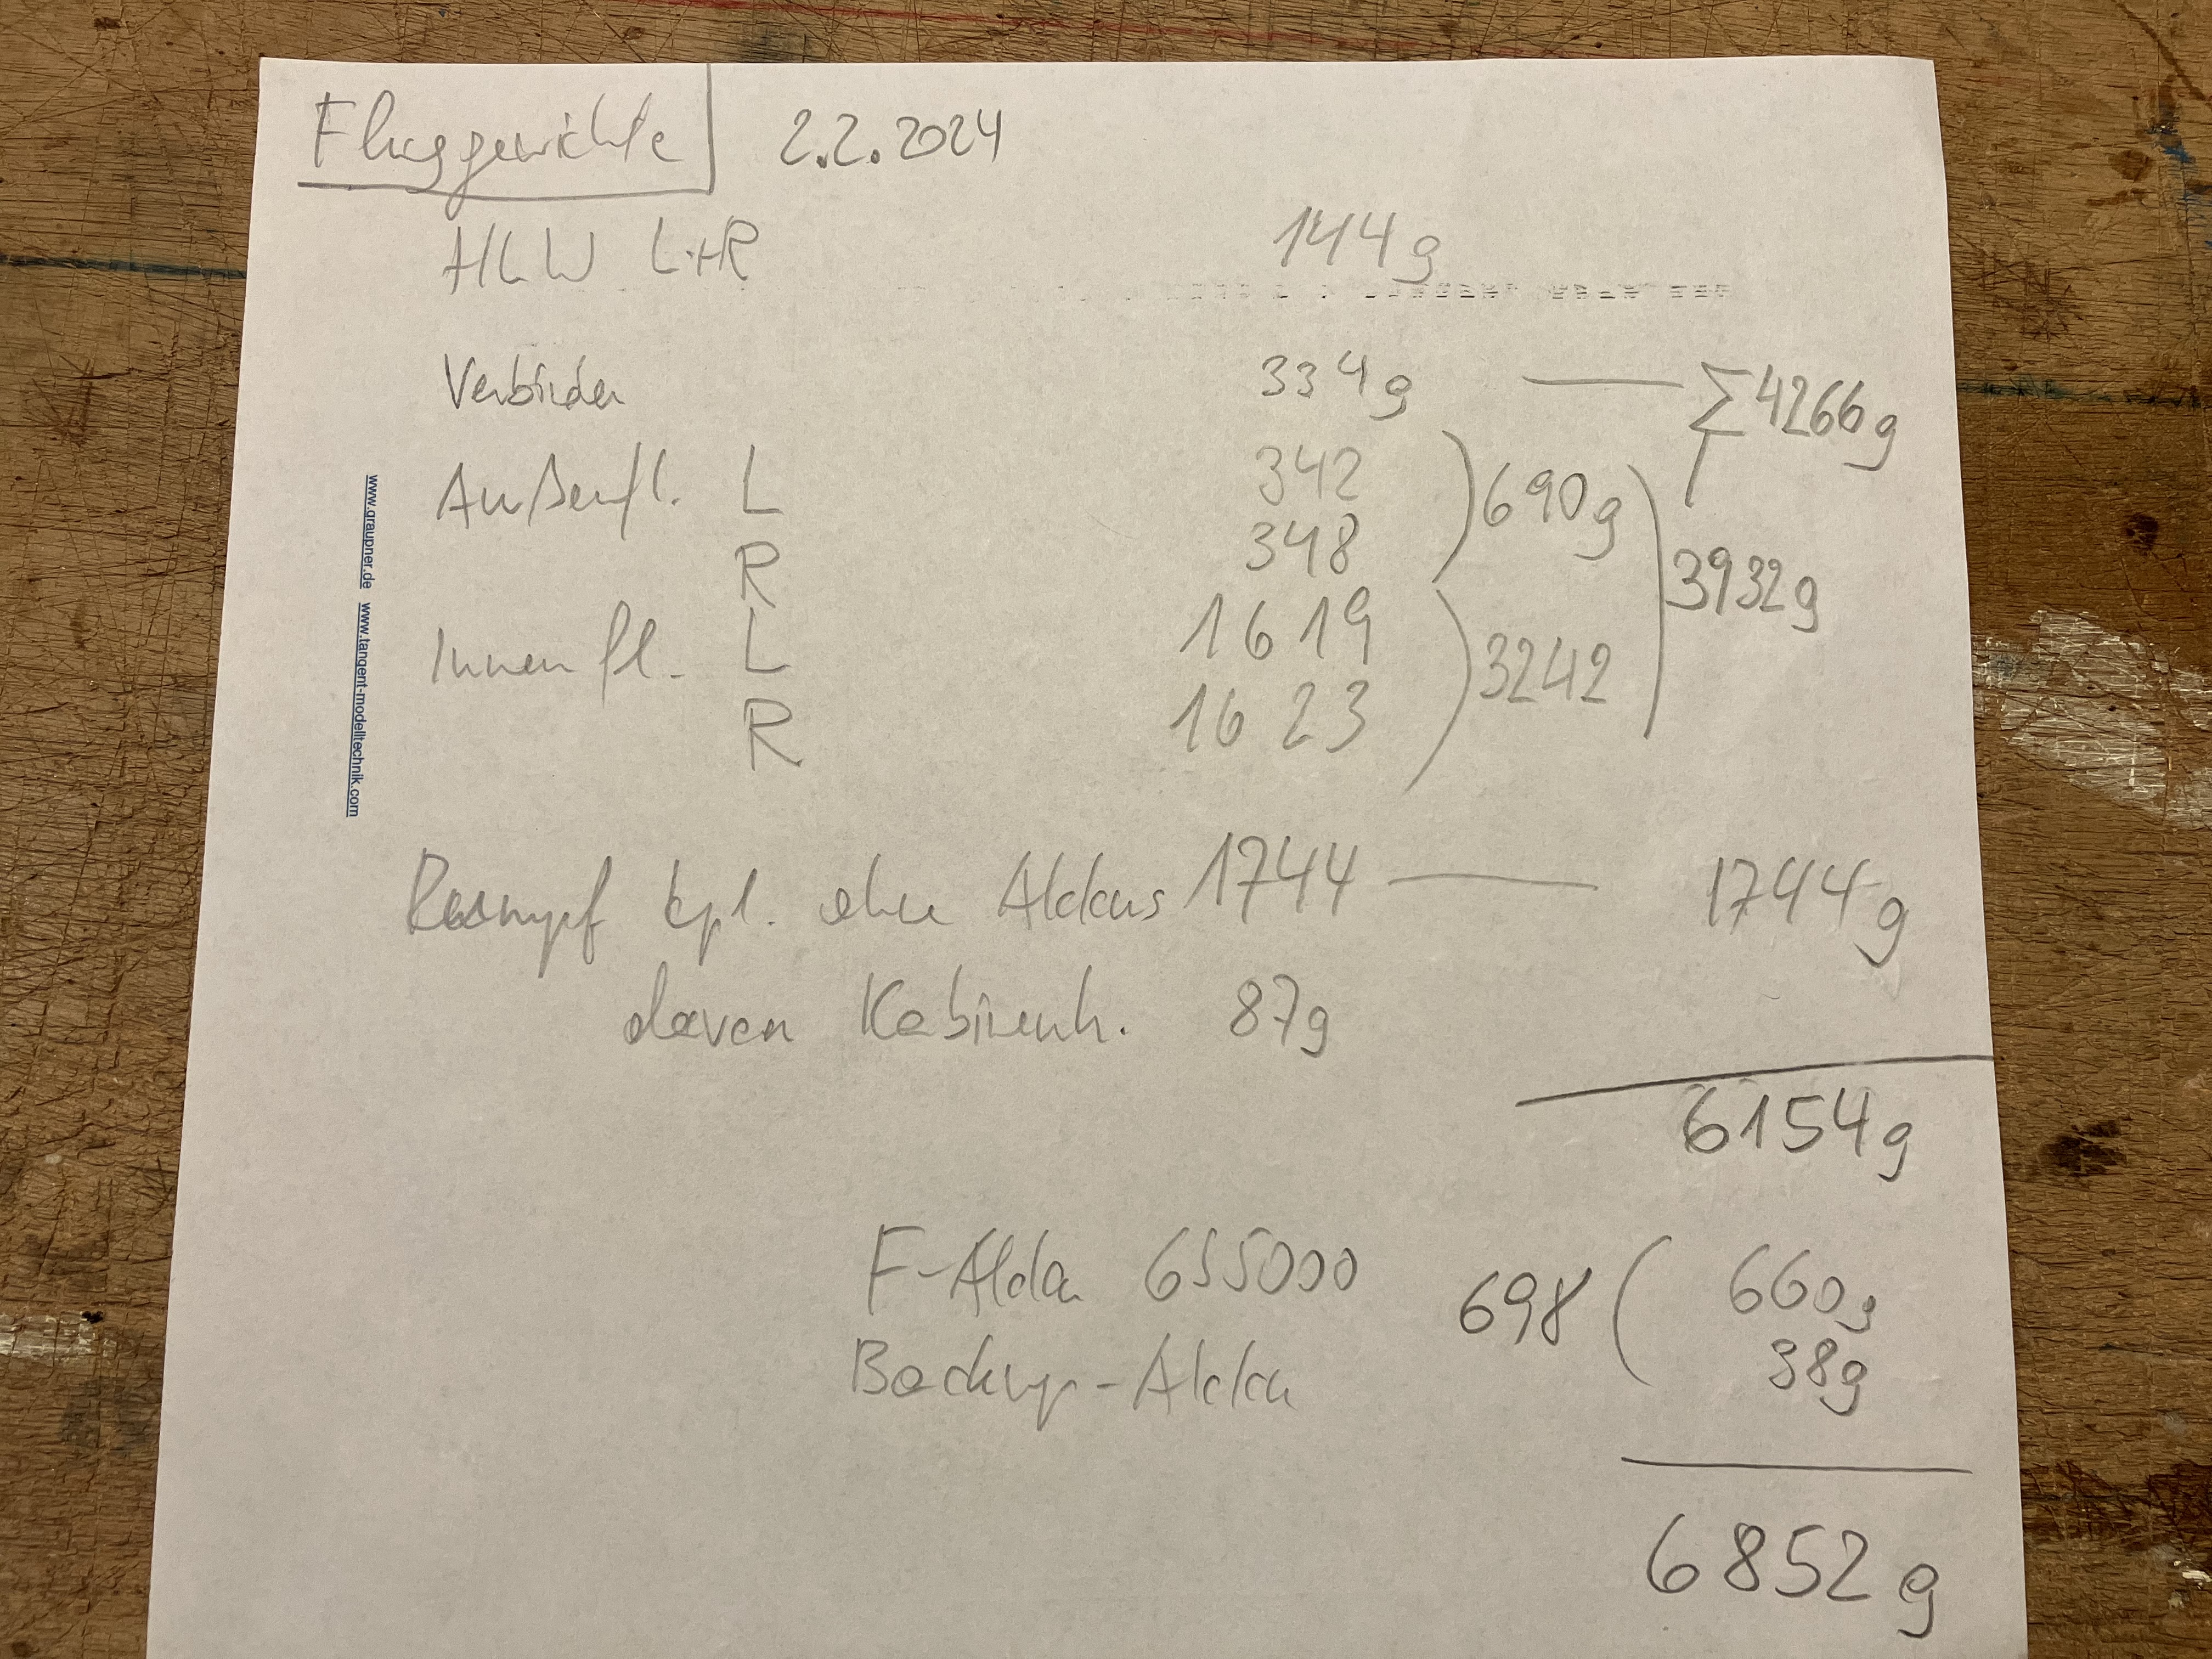 Fluggewichte 2.2.2024
HLW L+R 144g
Verbinder 334g — Σ4266g
Außenfl. L 342
R 348 ) 690g
Innenfl. L 1619
R 1623 ) 3242 ) 3932g
Rumpf kpl. ohne Akkus 1744 — 1744g
davon Kabinenh. 87g
6154g
F-Akku 6S5000 660g
Backup-Akku 38g
698 (
6852g
www.graupner.de www.tangent-modelltechnik.com